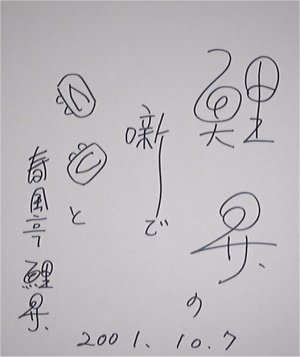 鯉昇の
噺で
と
春風亭鯉昇
2001.10.7